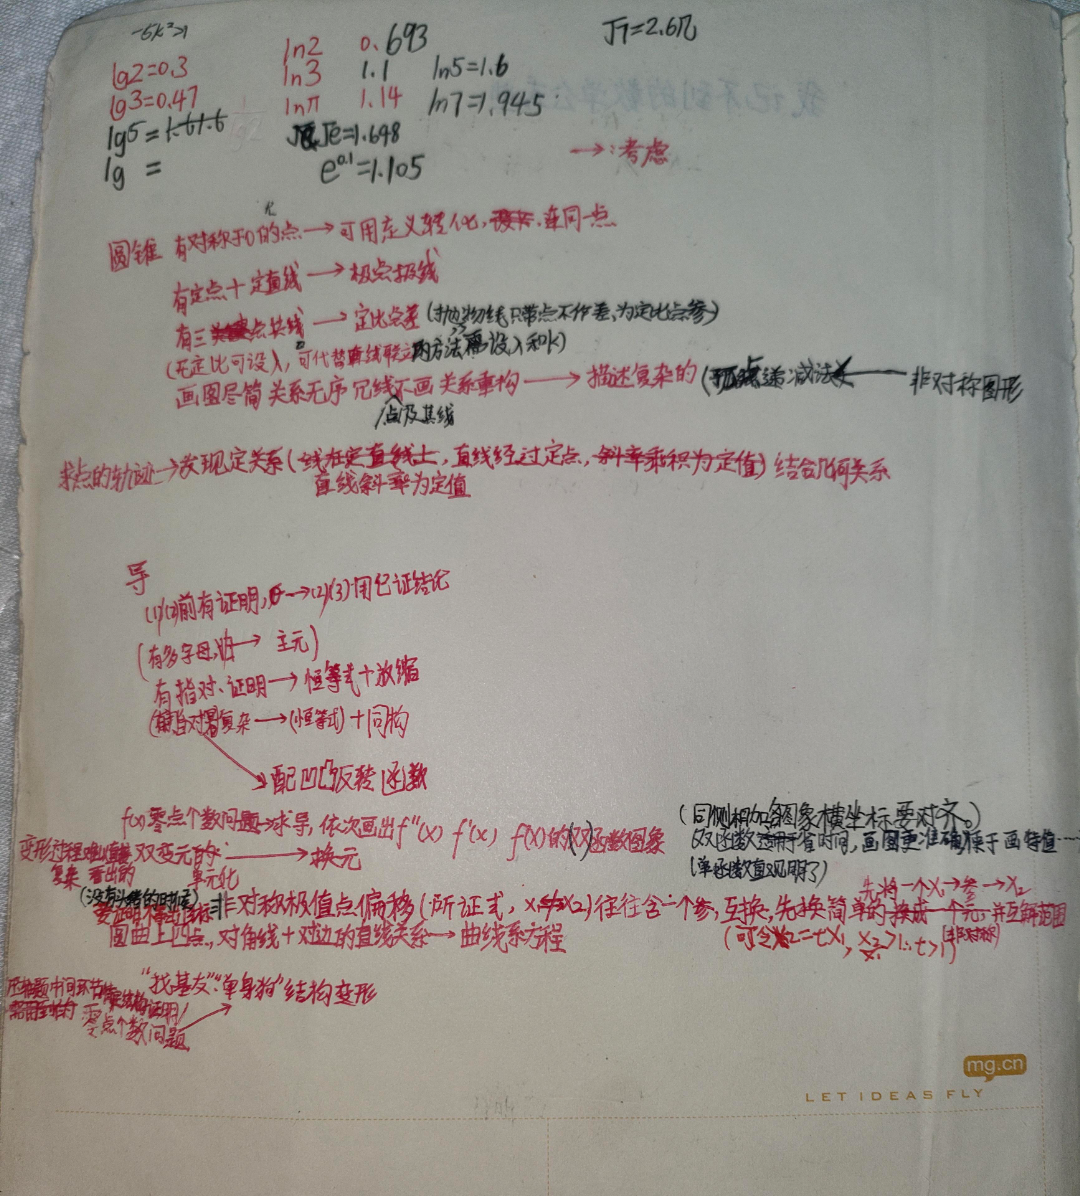 -5k²>1
ln2 0.693 √7=2.6几
lg2=0.3 ln3 1.1 ln5=1.6
lg3=0.47 lnπ 1.14 ln7=1.945
lg5= √e=1.648
lg = e^0.1=1.105 →:考虑
圆锥 有对称于O的点→可用定义转化,连同一点
有定点+定直线→极点极线
有三点共线→定比点差(抛物线只带点不作差,为定比点参)
(无定比可设λ,可代替直线联立的方法需设λ和k)
画图尽简 关系无序 冗线不画 关系重构→描述复杂的 递减法←非对称图形
点及其线
求点的轨迹→发现定关系(线在定直线上,直线经过定点,斜率乘积为定值)结合几何关系
直线斜率为定值
导
(1)(2)前有证明,→(2)(3)用已证结论
(有多字母,→主元)
有指对、证明→恒等式+放缩
复杂→(恒等式)+同构
配凹凸反转函数
f(x)零点个数问题→求导,依次画出f''(x) f'(x) f(x)的(双)函数图象
(同侧相加各图象横坐标要对齐。)
双函数适用于省时间,画图更准确便于画特值……
(单函数直观明了)
变形过程 双变元的→换元
复杂 看出的 单元化
(没有头绪的时候)
非对称极值点偏移(所证式,x₁x₂)往往含一个参,互换,先换简单的 换成一个元,并互解范围
先将一个x₁→参→x₂
(可令x₂=tx₁, x₂>1∴t>1)
圆曲上四点,对角线+对边的直线关系→曲线系方程
"找基友""单身狗"结构变形
压轴题中间环节 证明/
零点个数问题
mg.cn
LET IDEAS FLY